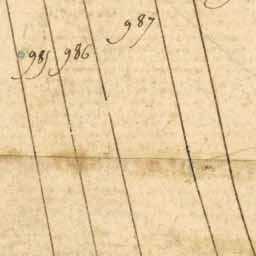 987
985 986